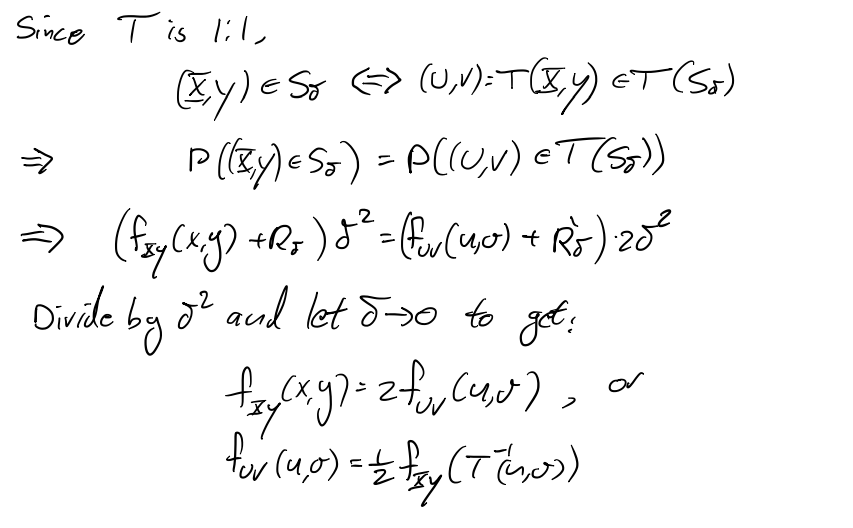 Since T is 1:1,
(X,Y) ∈ S_δ ⟺ (U,V) = T(X,Y) ∈ T(S_δ)
⇒ P((X,Y) ∈ S_δ) = P((U,V) ∈ T(S_δ))
⇒ (f_XY(x,y) + R_δ) δ² = (f_UV(u,v) + R̀_δ) · 2δ²
Divide by δ² and let δ→0 to get:
f_XY(x,y) = 2 f_UV(u,v), or
f_UV(u,v) = ½ f_XY(T⁻¹(u,v))